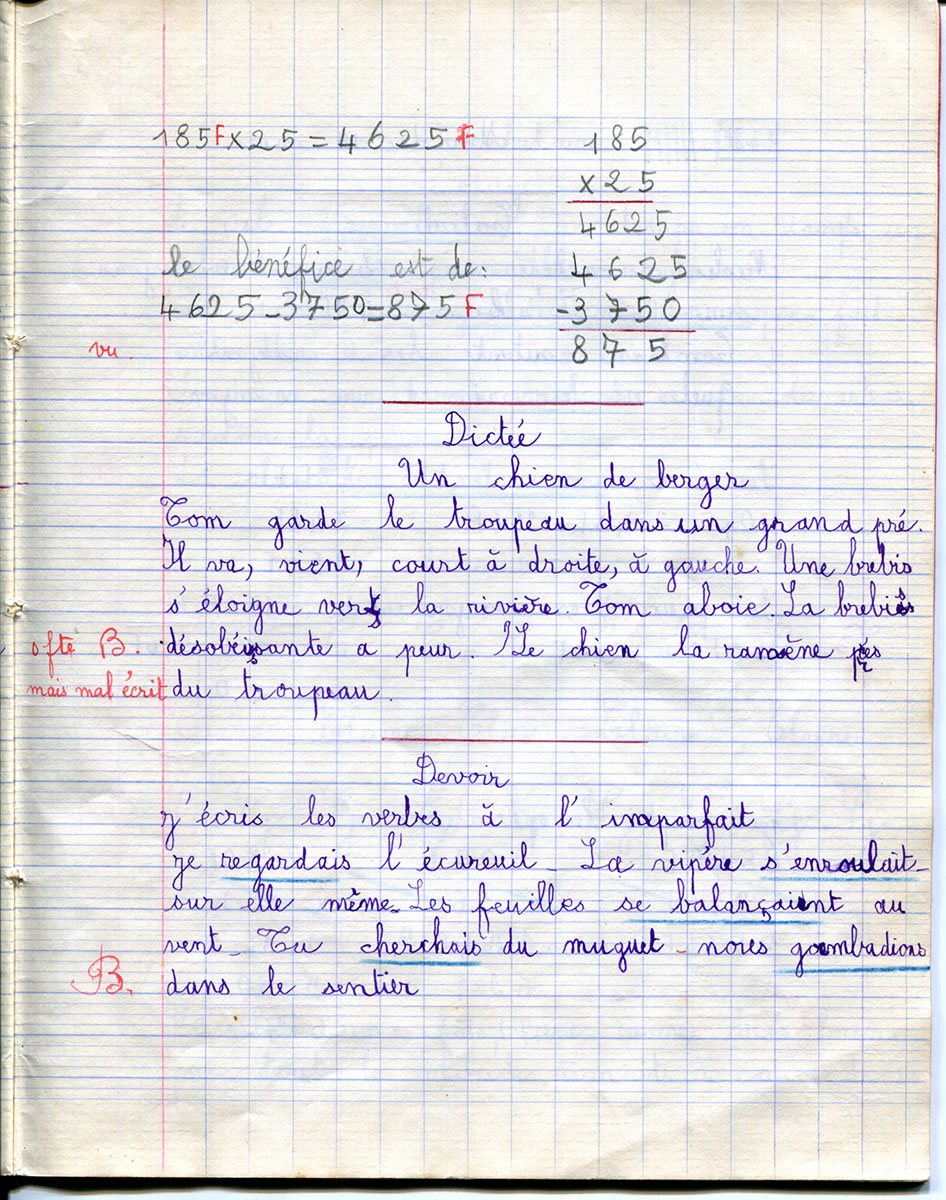 185F x 25 = 4625F
185
x 25
4625
le bénéfice est de:
4625 - 3750 = 875F
4625
-3750
875
vu.
Dictée
Un chien de berger
Tom garde le troupeau dans un grand pré.
Il va, vient, court à droite, à gauche. Une brebis
s'éloigne vers la rivière. Tom aboie. La brebis
B. désobéissante a peur. Le chien la ramène près
mais mal écrit du troupeau.
Devoir
J'écris les verbes à l'imparfait
je regardais l'écureuil - La vipère s'enroulait
sur elle même - Les feuilles se balançaient au
vent - Tu cherchais du muguet - nous gambadions
B. dans le sentier